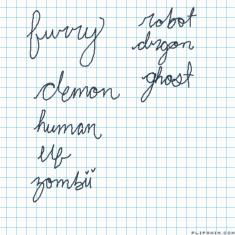 furry
demon
human
elf
zombii
robot
drgon
ghost
FLIPANIM.COM